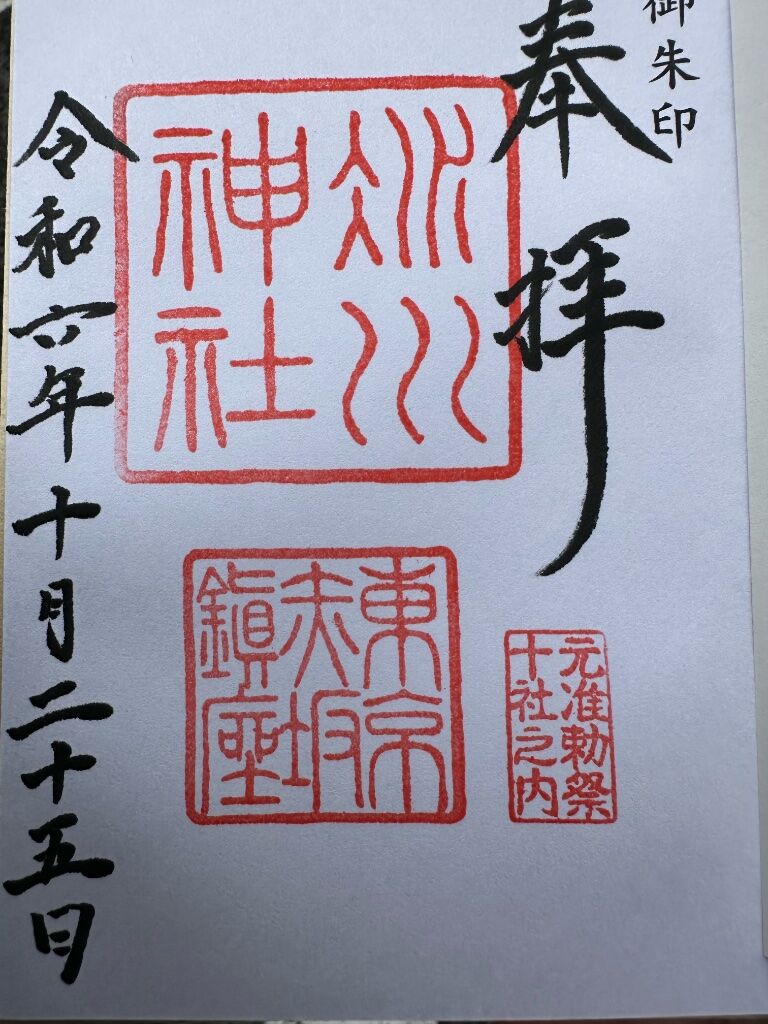 御朱印
奉拝
冰川
神社
東京
赤坂
鎭座
元准勅祭
十社之内
令和六年十月二十五日